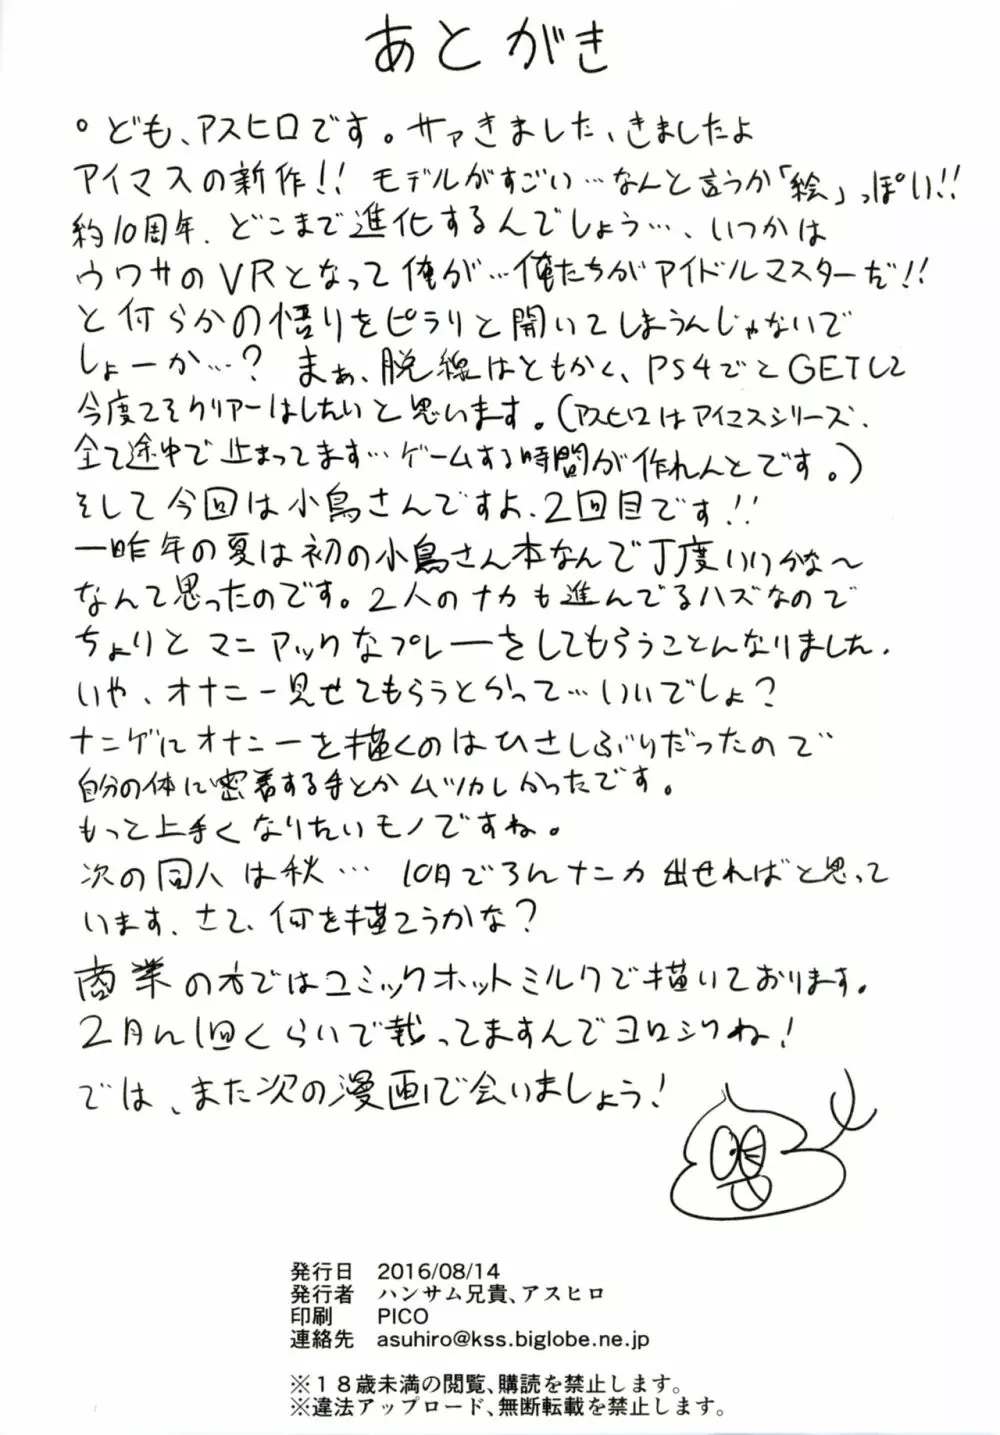 あとがき
°ども、アスヒロです。サァきました、きましたよ
アイマスの新作!! モデルがすごい…なんと言うか「絵」っぽい!!
約10周年、どこまで進化するんでしょう…、いつかは
ウワサのVRとなって俺が…俺たちがアイドルマスターだ!!
と何らかの悟りをピラリと開いてしまうんじゃないで
しょーか…? まぁ、脱線はともかく、PS4ごとGETして
今度こそクリアーはしたいと思います。(アスヒロはアイマスシリーズ、
全て途中で止まってます…ゲームする時間が作れんとです。)
そして今回は小鳥さんですよ、2回目です!!
一昨年の夏は初の小鳥さん本なんで丁度いいかな〜
なんて思ったのです。2人のナカも進んでるハズなので
ちょりとマニアックなプレーをしてもらうことんなりました。
いや、オナニー見せてもらうとかって…いいでしょ?
ナニゲにオナニーを描くのはひさしぶりだったので
自分の体に密着する手とかムツカしかったです。
もっと上手くなりたいモノですね。
次の同人は秋… 10月ごろんナニカ出せればと思って
います、さて、何を描こうかな?
商業の方ではコミックホットミルクで描いております。
2月ん1回くらいで載ってますんでヨロシクね!
では、また次の漫画で会いましょう!
発行日 2016/08/14
発行者 ハンサム兄貴、アスヒロ
印刷 PICO
連絡先 asuhiro@kss.biglobe.ne.jp
※18歳未満の閲覧、購読を禁止します。
※違法アップロード、無断転載を禁止します。